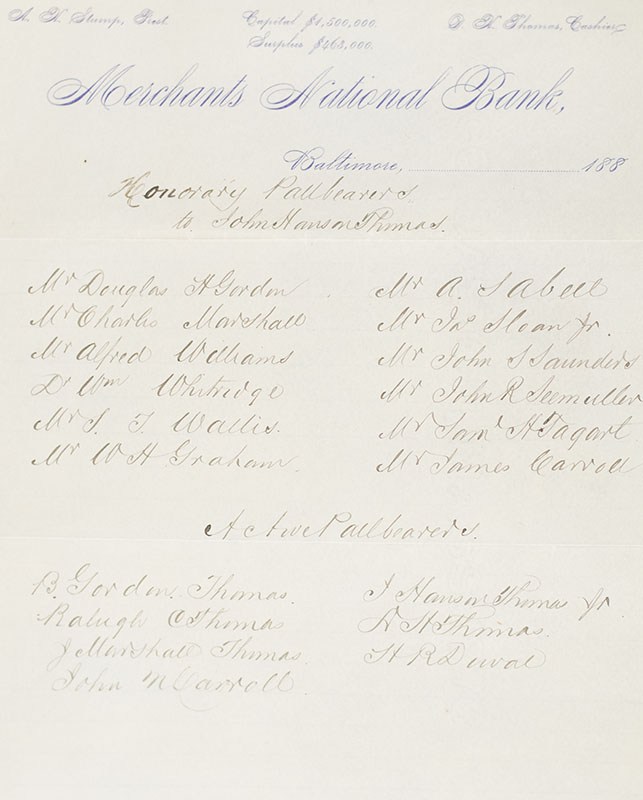 A. H. Stump, Prest.
Capital $1,500,000.
Surplus $463,000.
D. H. Thomas, Cashier,
Merchants National Bank,
Baltimore, 188
Honorary Pallbearers
to John Hanson Thomas.
Mr Douglas H Gordon
Mr Charles Marshall
Mr Alfred Williams
Dr Wm Whitridge
Mr S. T. Wallis.
Mr W H Graham.
Mr A. S Abell
Mr Jno Sloan Jr.
Mr John S Saunders
Mr John R Seemuller
Mr Saml H Tagart
Mr James Carroll
Active Pallbearers.
B. Gordon Thomas.
Raleigh C Thomas
J Marshall Thomas.
John N Carroll
J Hanson Thomas Jr
D H Thomas.
H R Duval